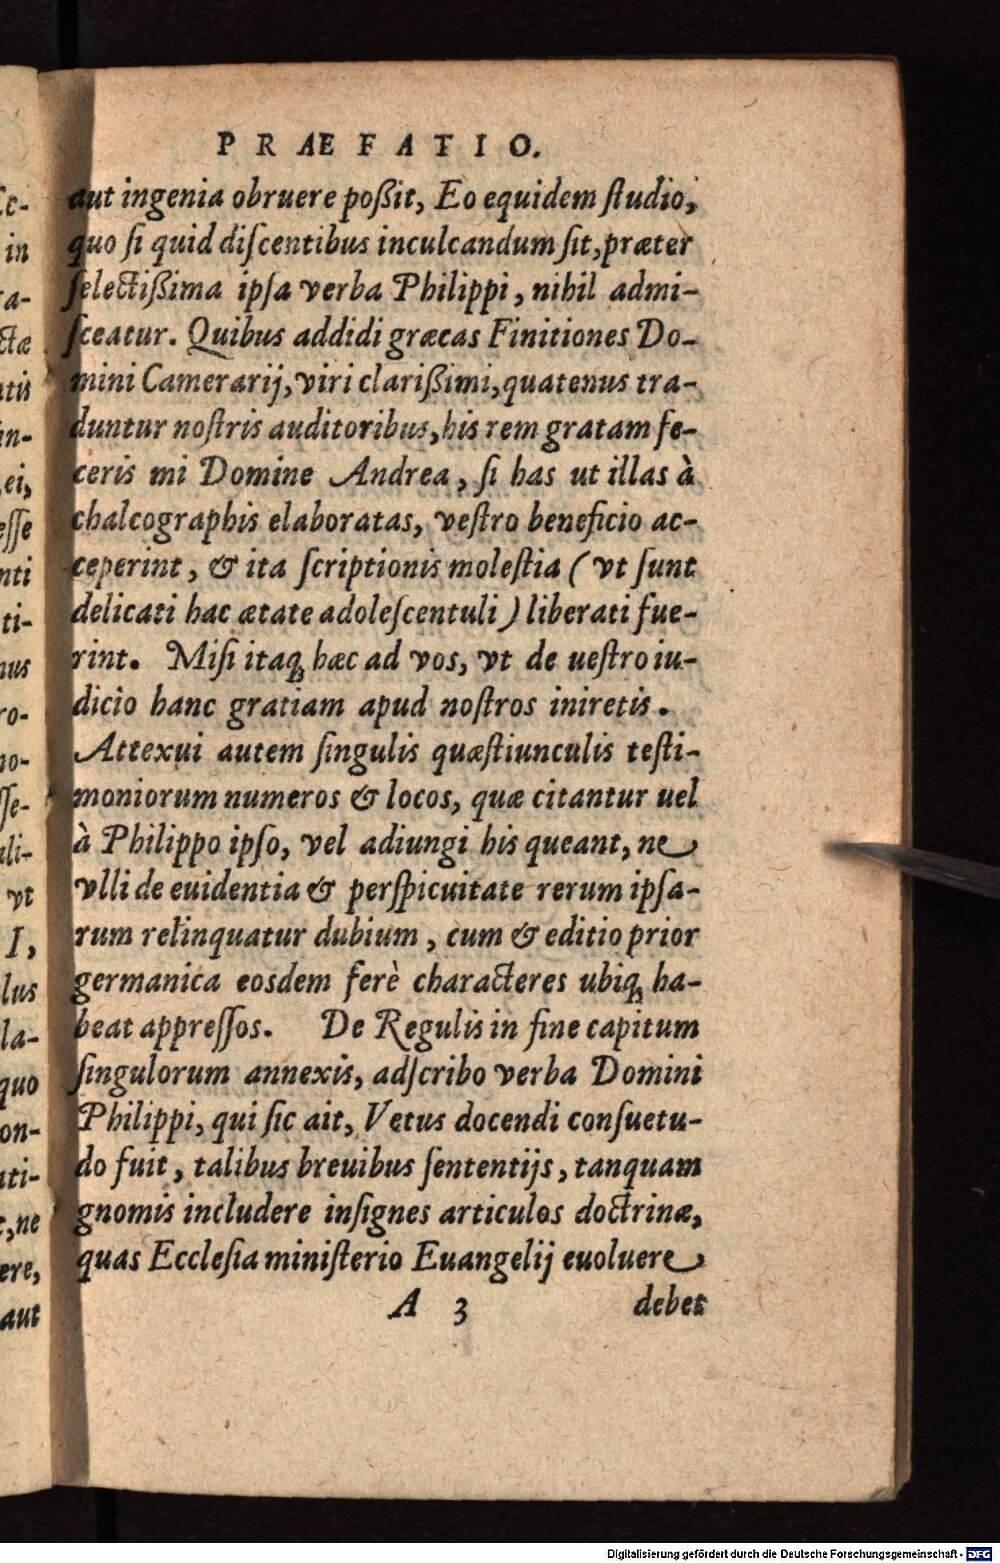 PRÆFATIO.
aut ingenia obruere poßit, Eo equidem ſtudio,
quo ſi quid diſcentibus inculcandum ſit, præter
ſelectißima ipſa verba Philippi, nihil admi-
ſceatur. Quibus addidi græcas Finitiones Do-
mini Camerarij, viri clarißimi, quatenus tra-
duntur noſtris auditoribus, his rem gratam fe-
ceris mi Domine Andrea, ſi has ut illas à
chalcographis elaboratas, veſtro beneficio ac-
ceperint, & ita ſcriptionis moleſtia (vt ſunt
delicati hac ætate adoleſcentuli) liberati fue-
rint. Miſi itaq; hæc ad vos, vt de ueſtro iu-
dicio hanc gratiam apud noſtros iniretis.
Attexui autem ſingulis quæſtiunculis teſti-
moniorum numeros & locos, quæ citantur uel
à Philippo ipſo, vel adiungi his queant, ne
vlli de euidentia & perſpicuitate rerum ipſa-
rum relinquatur dubium, cum & editio prior
germanica eosdem ferè characteres ubiq; ha-
beat appreſſos. De Regulis in fine capitum
ſingulorum annexis, adſcribo verba Domini
Philippi, qui ſic ait, Vetus docendi conſuetu-
do fuit, talibus breuibus ſententijs, tanquam
gnomis includere inſignes articulos doctrinæ,
quas Eccleſia miniſterio Euangelij euoluere
A 3 debet
Digitalisierung gefördert durch die Deutsche Forschungsgemeinschaft - DFG